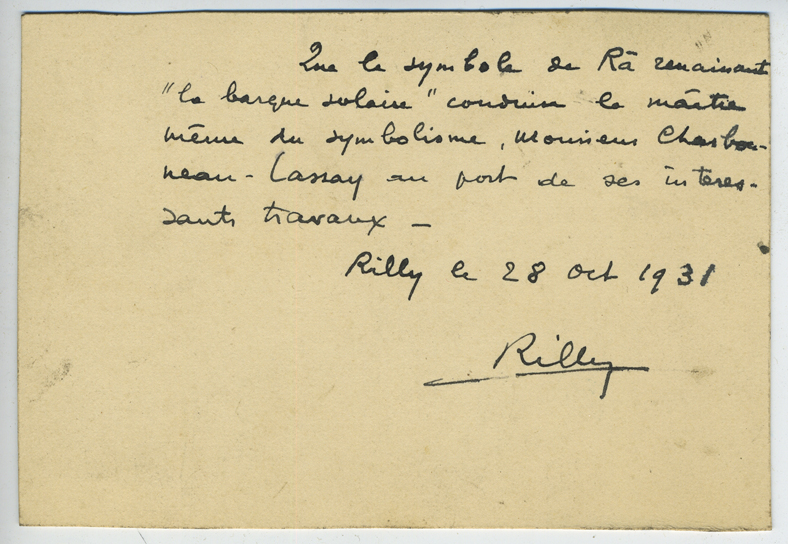 Que le symbole de Râ renaissant
"la barque solaire" conduise le maître
même du symbolisme, Monsieur Charbon-
neau-Lassay au port de ses intéres-
sants travaux —
Rilly le 28 Oct 1931
Rilly